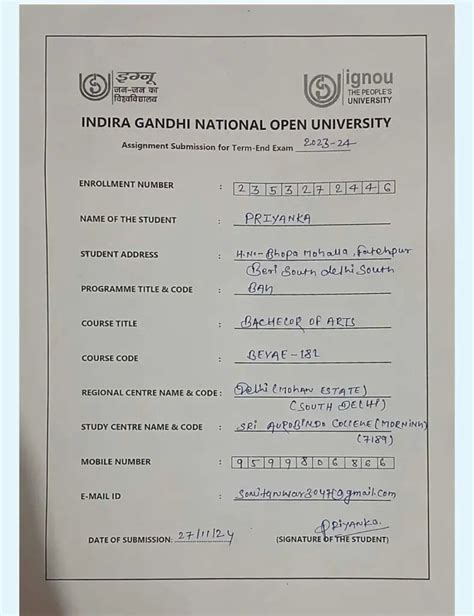 इग्नू
जन-जन का
विश्वविद्यालय
ignou
THE PEOPLE'S
UNIVERSITY
INDIRA GANDHI NATIONAL OPEN UNIVERSITY
Assignment Submission for Term-End Exam 2023-24
ENROLLMENT NUMBER : 2353272446
NAME OF THE STUDENT : PRIYANKA
STUDENT ADDRESS : H.No- Bhopa Mohalla, Fatehpur
Beri South delhi South
PROGRAMME TITLE & CODE : BAH
COURSE TITLE : BACHELOR OF ARTS
COURSE CODE : BEVAE-181
REGIONAL CENTRE NAME & CODE : Delhi (MOHAN ESTATE)
(SOUTH DELHI)
STUDY CENTRE NAME & CODE : SRI AUROBINDO COLLEGE (MORNING)
(7189)
MOBILE NUMBER : 9599806866
E-MAIL ID :
DATE OF SUBMISSION: 27/11/24
PRIYANKA.
(SIGNATURE OF THE STUDENT)